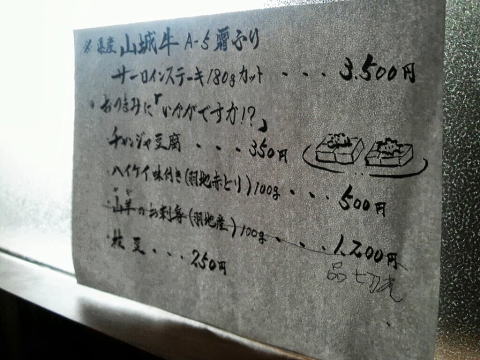 ※県産 山城牛 A-5 霜ふり
サーロインステーキ180gカット・・・3.500円
・おつまみに『いかがですか!?』
チャンジャ豆腐・・・350円
・ハイケイ味付き(羽地赤どり)100g・・・500円
・山羊のお刺身(羽地産)100g・・・1.200円
品切れ
・枝豆・・・250円